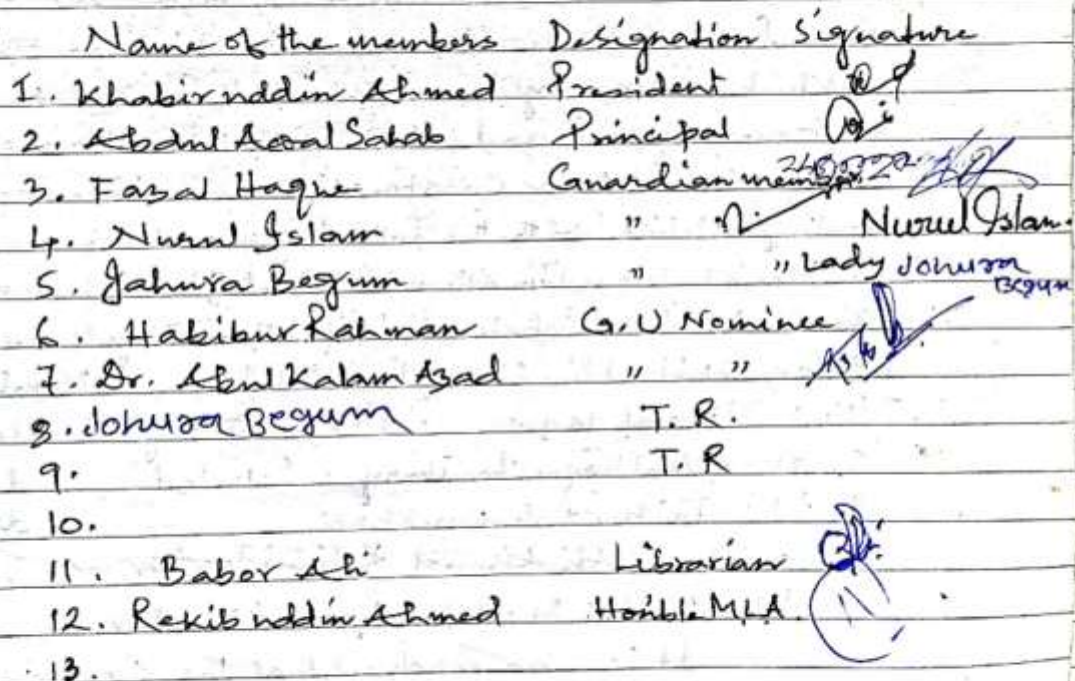 Name of the members Designation Signature
1. Khabir uddin Ahmed President
2. Abdul Aoal Sahab Principal
3. Fazal Haque Guardian member
4. Nurul Islam " " Nurul Islam.
5. Jahura Begum " " Lady Johura Begum
6. Habibur Rahman G.U Nominee
7. Dr. Abul Kalam Azad " "
8. Johura Begum T. R.
9. T. R
10.
11. Babor Ali Librarian
12. Rekib uddin Ahmed Hon'ble MLA.
13.